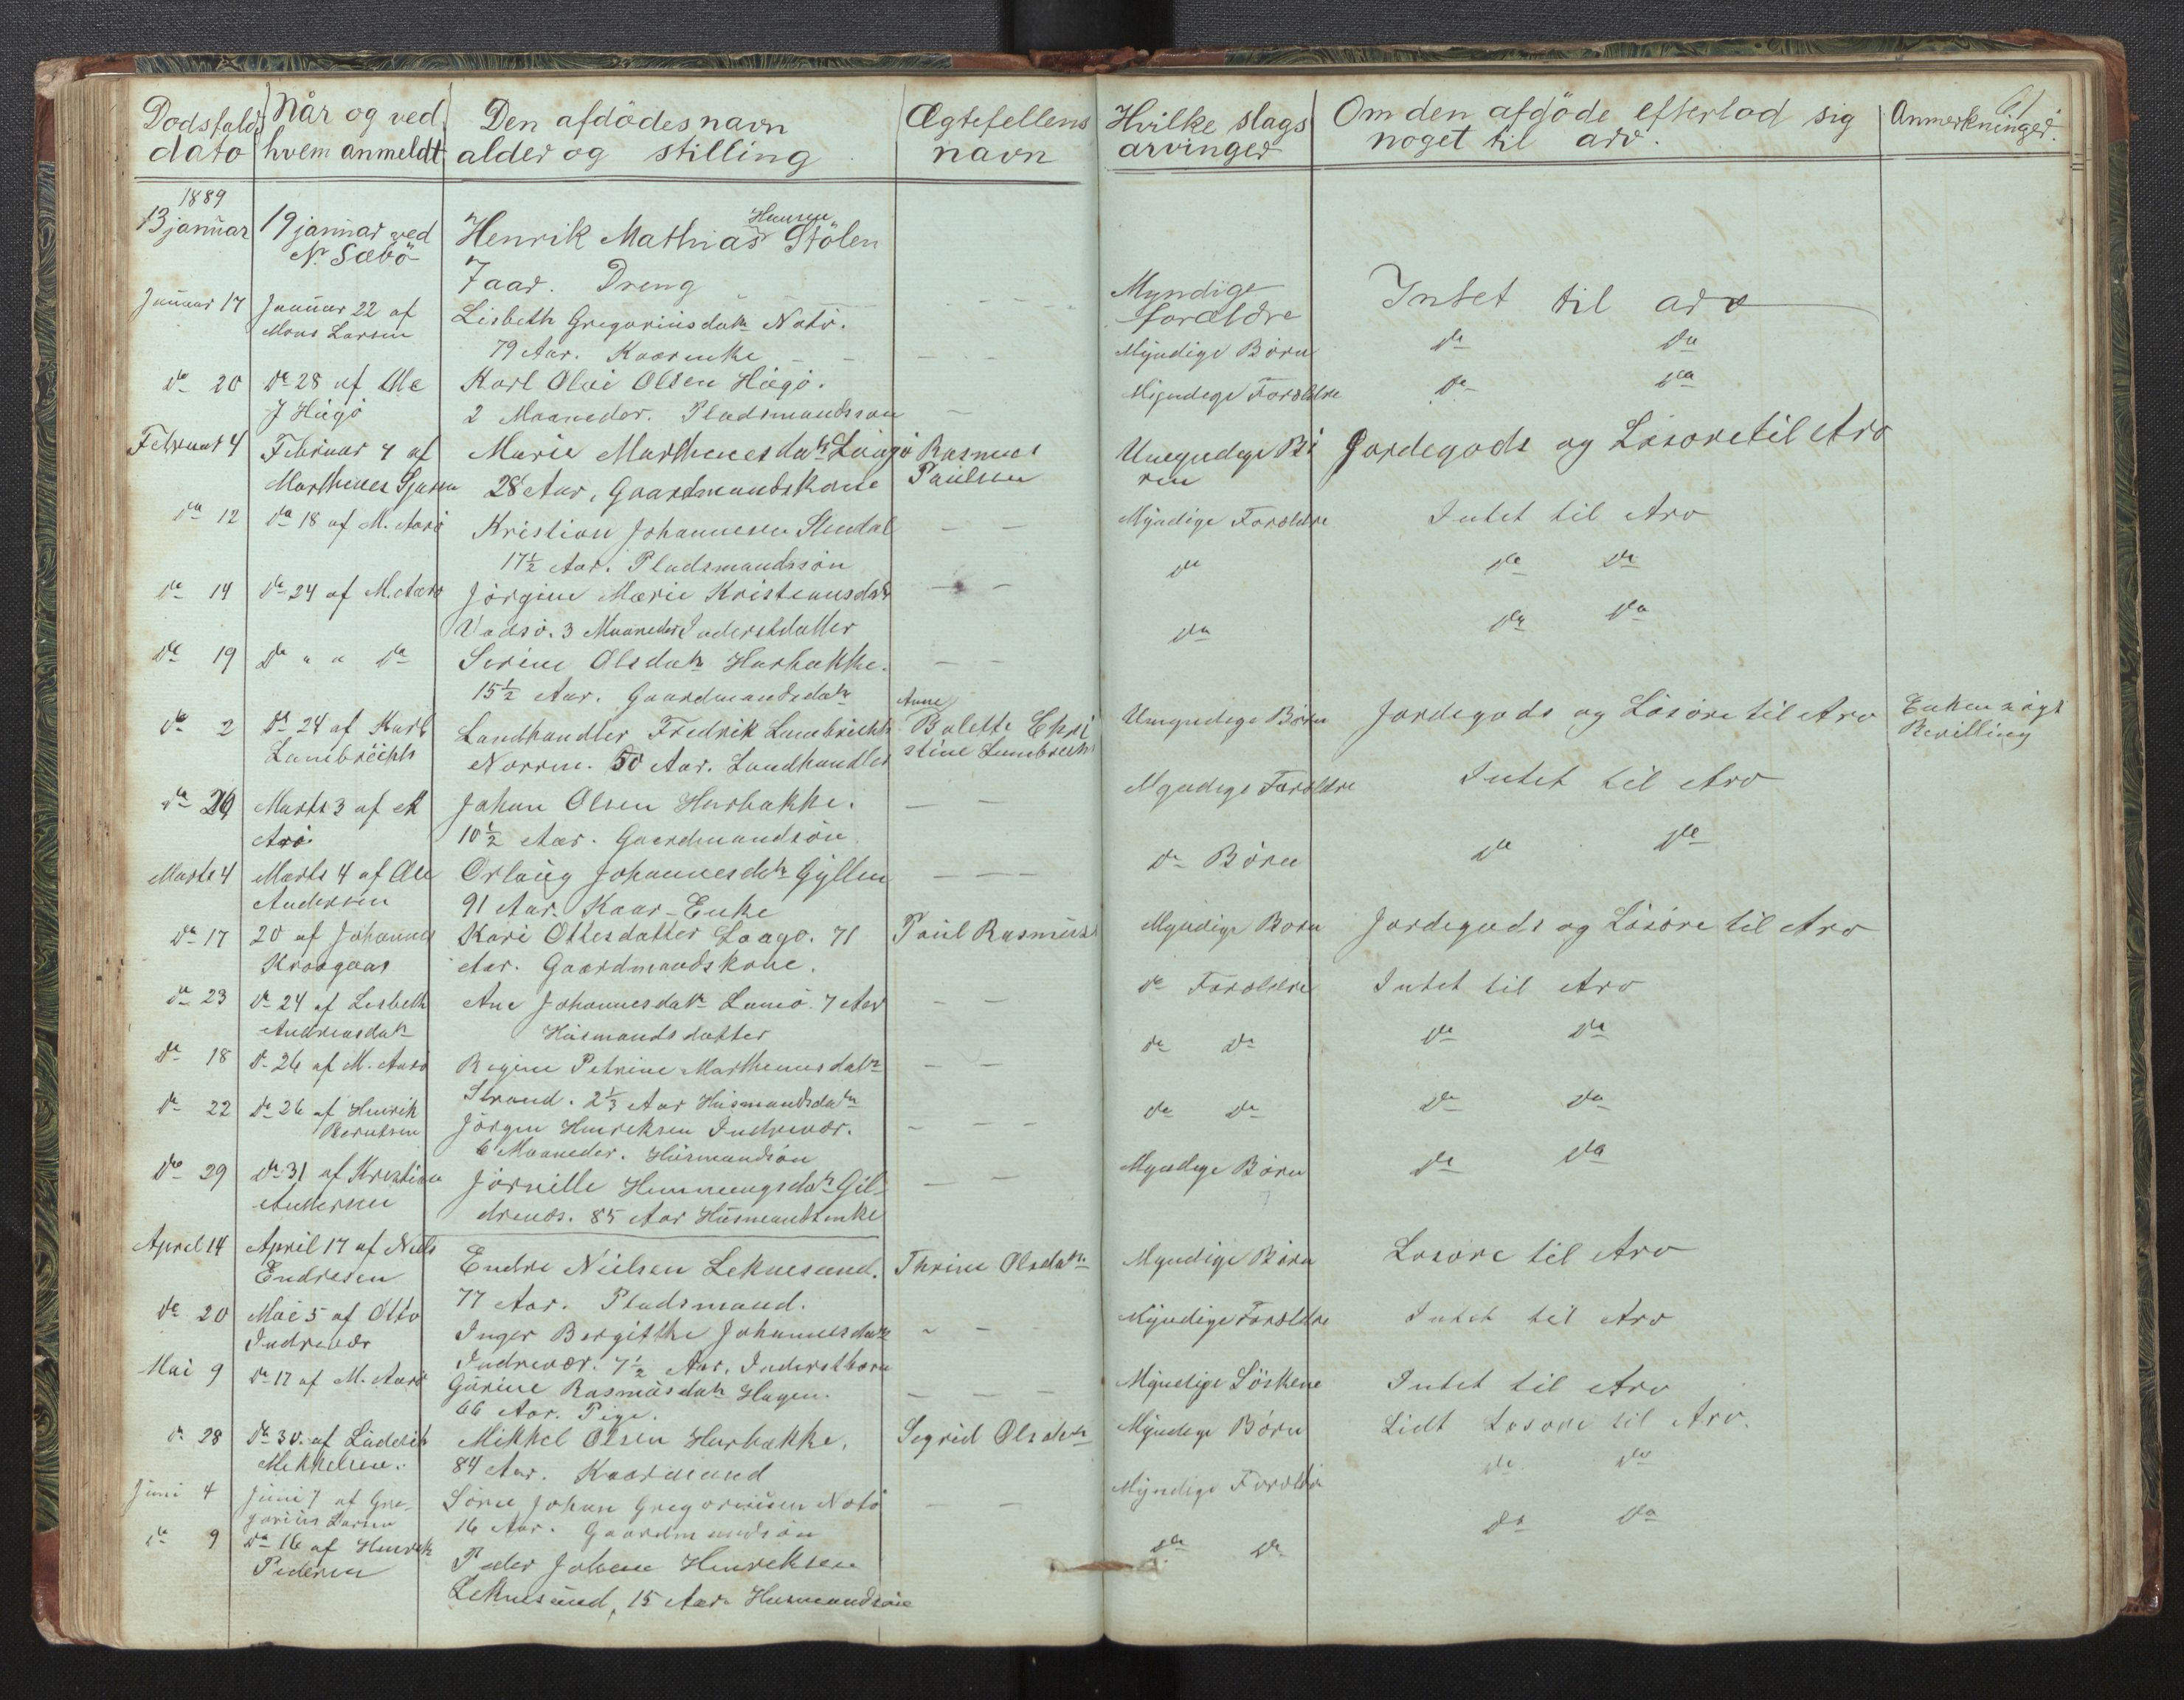 61
Dødsfalds dato | Når og ved hvem anmeldt | Den afdödes navn alder og stilling | Ægtefellens navn | Hvilke slags arvinger | Om den afdöde efterlod sig noget til arv. | Anmerkninger.
1889
13 januar | 19 januar ved N. Sæbö | Henrik Mathias Hansen Stölen 7 aar. Dreng | Myndige forældre | Intet til arv
Januar 17 | Januar 22 af Mons Larsen | Lisbeth Gregoriusdatr Notö. 79 Aar. Kaarenke | – – – | Myndige Børn | do do
do 20 | do 28 af Ole J Hägö | Karl Olai Olsen Hägö. 2 Maaneder. Pladsmandssøn | – | Myndige Forældre | do do
Februar 4 | Februar 7 af Marthines | Marie Marthinesdatr Laagö 28 Aar, Gaardmandskone | Rasmus Paulsen | Umyndige Børn | Jordegods og Løsøre til Arv
do 12 | do 18 af M. Aarö | Kristian Johannesen Stendal 17½ Aar. Pladsmandssøn | – – | Myndige Forældre | Intet til Arv
do 14 | do 24 af M. Aarö | Jörgine Marie Kristensdatr Vadsö. 3 Maaneder Inderstdatter | – – | do | do do
do 19 | do " " do | Serine Olsdatr Harbakke. 15½ Aar. Gaardmandsdatr | – – | do | do do
do 2 | do 24 af Karl Lambrechts | Landhandler Fredrik Lambrechts Norrn. 50 Aar. Landhandler | Anne Bolette Christine Lambrechts | Umyndige Børn | Jordegods og Løsøre til Arv | Enken søgt Bevilling
do 26 | Marts 3 af M Arö | Johan Olsen Harbakke. 10½ Aar. Gaardmandsøn. | – – | Myndige Forældre | Intet til Arv
Marts 4 | Marts 4 af Ole Andersen | Orlaug Johannesdatr Gyllen 91 Aar. Kaar-Enke | – – – | do Børn | do do
do 17 | 20 af Johannes | Kari Ottesdatter Laago. 71 Aar. Gaardmandskone. | Paul Rasmuss | Myndige Børn | Jordegods og Løsøre til Arv
do 23 | do 24 af Lisbeth Andreasdatr | Ane Johannesdatr Lamö. 7 Aar Husmandsdatter | – – | do Forældre | Intet til Arv
do 18 | do 26 af M. Aarö | Regine Petrine Marthinusdatr Strand. 2⅓ Aar Husmandsdatr | – – | do do | do do
do 22 | do 26 af Henrik Berntsen | Jörgen Henriksen Indrevær. 6 Maaneder. Husmandsøn | – – – | do do | do do
do 29 | do 31 af Kristian Andersen | Jörnille Henningsdatr Gildrenæs. 85 Aar Husmandsenke | – – | Myndige Børn | do do
April 14 | April 17 af Niels Endresen | Endre Nielsen Leknesund. 77 Aar. Pladsmand. | Thrine Olsdatr | Myndige Børn | Løsøre til Arv
do 20 | Mai 5 af Otto Indrevær | Inger Bergitthe Johannesdatr Indrevær. 7½ Aar. Inderstbarn | – – – | Myndige Forældre | Intet til Arv
Mai 9 | do 17 af M. Aarö | Gurine Rasmusdatr Hagen. 66 Aar. Pige. | – – – | Myndige Söskene | Intet til Arv
do 28 | do 30. af Luderik Mikkelsen. | Mikkel Olsen Harbakke. 84 Aar. Kaarmand | Segrid Olsdatr | Myndige Børn | Lidt Løsøre til Arv.
Juni 4 | Juni 7 af Gregorius Larsen | Sören Johan Gregoriusen Notö 16 Aar. Gaardmandsön | – – | Myndige Forældre | do do
do 9 | do 16 af Henrik Pedersen | Peder Johan Henriksen Leknesund, 15 Aar Husmandsön | do do | do do